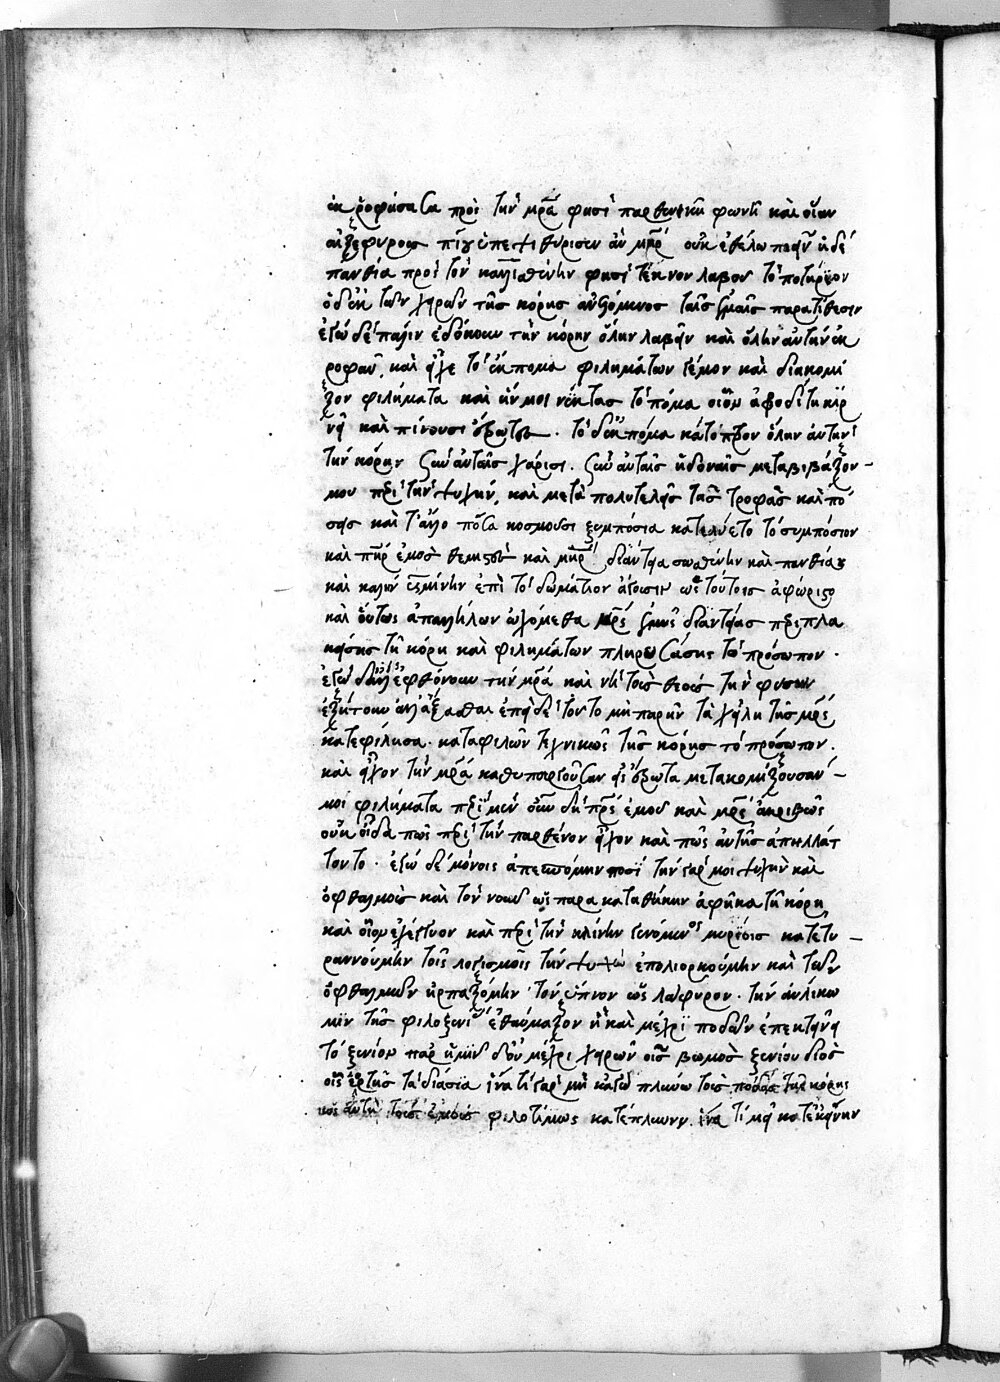 ἐκροφήσασα πρὸς τὴν μρα φησὶ παρθενικῆ φωνῆ καὶ οἷον
αἱ ζέφυρος πίτυϊ ἐπεψιθύρισεν ἂν μηρ οὐκ ἐθέλω πιεῖν ἡ δὲ
πανθία πρὸς τὸν κρατισθένην φησὶ τέκνον λαβὼν τὸ ποτήριον
ὁ δ' ἐκ τῶν χειρῶν τῆς κόρης ἀντόμενος ταῖς ἐμαῖς παρατίθεσιν
ἐγὼ δὲ πάλιν ἐδόκουν τὴν κόρην ὅλην λαβεῖν καὶ ὅλην αὐτὴν ἐκ
ροφᾶν. καὶ ἦγε τὸ ἔκπομα φιλημάτων γέμον καὶ διακομί
ζον φιλήματα καὶ ἦν μοι νέκταρ τὸ πόμα οἷον ἀφροδίτη κιρ
νᾶ καὶ πίνουσι ἔρωτες. τὸ δ' ἔκπομα κάτοπτρον ὅλην αὐτὴν
τὴν κόρην σὺν αὐταῖς χάρισι. σὺν αὐταῖς ἡδοναῖς μεταβιβάζον-
μου περὶ τὴν ψυχήν. καὶ μετὰ πολυτελεῖς τὰς τροφὰς καὶ πό
σεις καὶ τἄλλο πόσα κοσμοῦσι ξυμπόσια κατελύετο τὸ συμπόσιον
καὶ πηρ ἐμὸς θεμιστεὺς καὶ μηρ διάντεια σωσθένην καὶ πανθίαν
καὶ καλὴν ὑσμίνην ἐπὶ τὸ δωμάτιον ἄγουσιν ὡς τούτοις ἀφώριστο
καὶ οὕτως ἀπαλλήλων ᾠχόμεθα μρς ἐμῆς διαντείας περιπλα
κείσης τῆ κόρη καὶ φιλημάτων πληρωσάσης τὸ πρόσωπον.
ἐγὼ δ' ἀλλ' ἐφθόνουν τὴν μρα καὶ νὴ τοὺς θεοὺς τὴν φύσιν
ἐζήτουν ἀλλάξασθαι ἐπεὶ δὲ τοῦτο μὴ παρῆν τὰ χείλη τῆς μρς
κατεφίλησα. καταφιλῶν τεχνικῶς τῆς κόρης τὸ πρόσωπον.
καὶ εἶχον τὴν μρα καθυπουργοῦσαν εἰς ἔρωτα μετακομίζουσαν-
μοι φιλήματα περὶ μὲν οὖν δὴ πρς ἐμοῦ καὶ μρς ἀκριβῶς
οὐκ οἶδα πῶς περὶ τὴν παρθένον εἶχον καὶ πῶς αὐτῆς ἀπηλλάτ
τοντο. ἐγὼ δὲ μόνοις ἀπεσπώμην ποσί τὴν γάρ μοι ψυχὴν καὶ
ὀφθαλμοὺς καὶ τὸν νοῦν ὡς παρακαταθήκην ἀφῆκα τῆ κόρη
καὶ οἷον ἐξέπνεον καὶ περὶ τὴν κλίνην γενόμενος μυρίοις κατετυ-
ραννούμην τοῖς λογισμοῖς τὴν ψυχὴν ἐπολιορκούμην καὶ τῶν
ὀφθαλμῶν ἡρπαζόμην τὸν ὕπνον ὡς λάφυρον. τὴν αὐλίκω
μιν τῆς φιλοξενίας ἐθαύμαζον ἣ καὶ μέχρι ποδῶν ἐπεκτείνει
τὸ ξένιον παρ' ἡμῖν δ' οὐ μέχρι χειρῶν οἷς βωμὸς ξενίου διὸς
οἷς ἑορτῆς τὰ διάσια ἵνα τί γὰρ μὴ κἀγὼ πλύνω τοὺς πόδας τῆς κόρης
ὡς αὐτὴ τοὺς ἐμοὺς φιλοτίμως κατέπλυνεν. ἵνα τί μὴ κατέκλινην